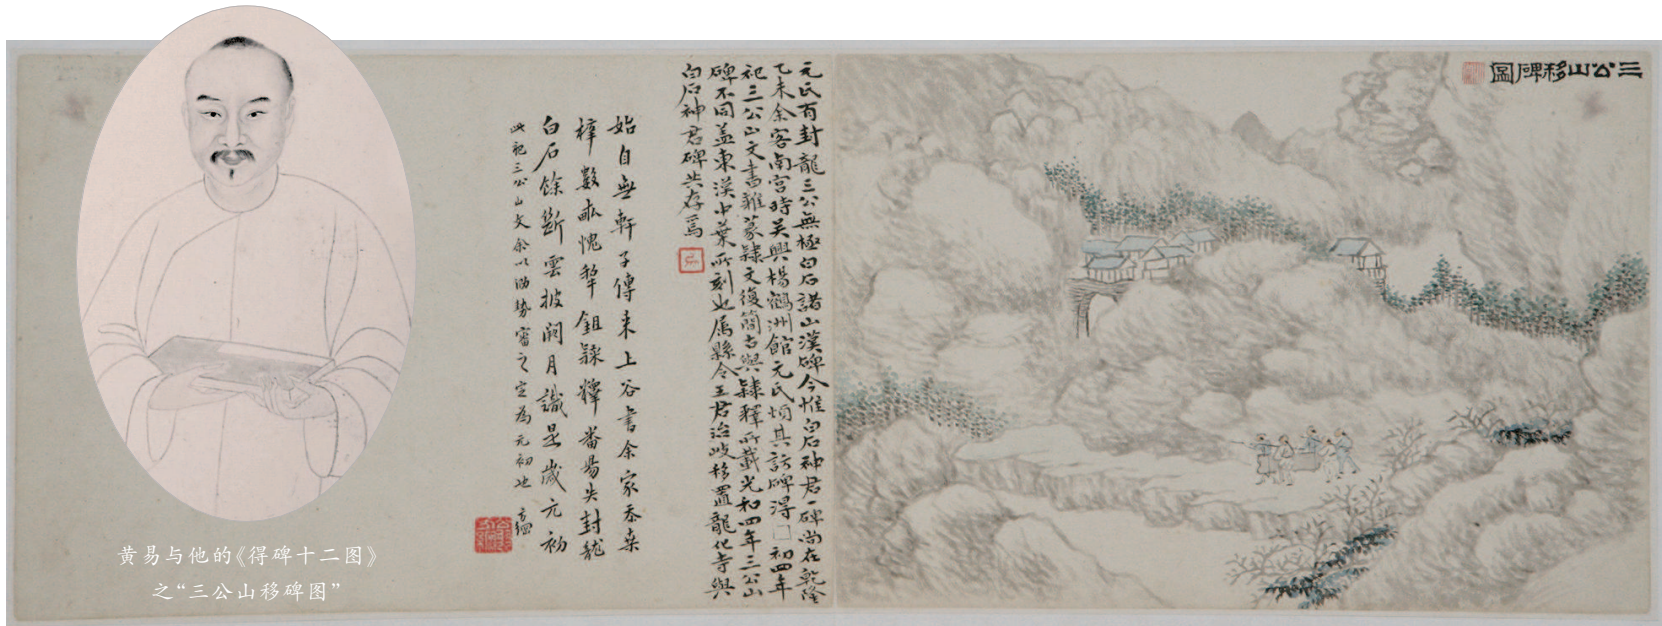 三公山移碑圖
元氏有封龍三公無極白石諸山漢碑今惟白石神君一碑尚在乾隆
乙未余客南宮時吴興楊鶴洲館元氏煩其訪碑得□初四年
祀三公山文書雜篆隸文復簡古與隸釋所載光和四年三公山
碑不同蓋東漢中葉所刻也屬縣令王君治岐移置龍化寺與
白石神君碑共存焉
始自無軒子傳来上谷書余家忝桒
梓數畝愧犂鉏隸釋番昜失封龍
白石餘斷雲披闕月識是歲元初
此祀三公山文余以泐勢審之定為元初也 方綱
黄易与他的《得碑十二图》
之“三公山移碑图”